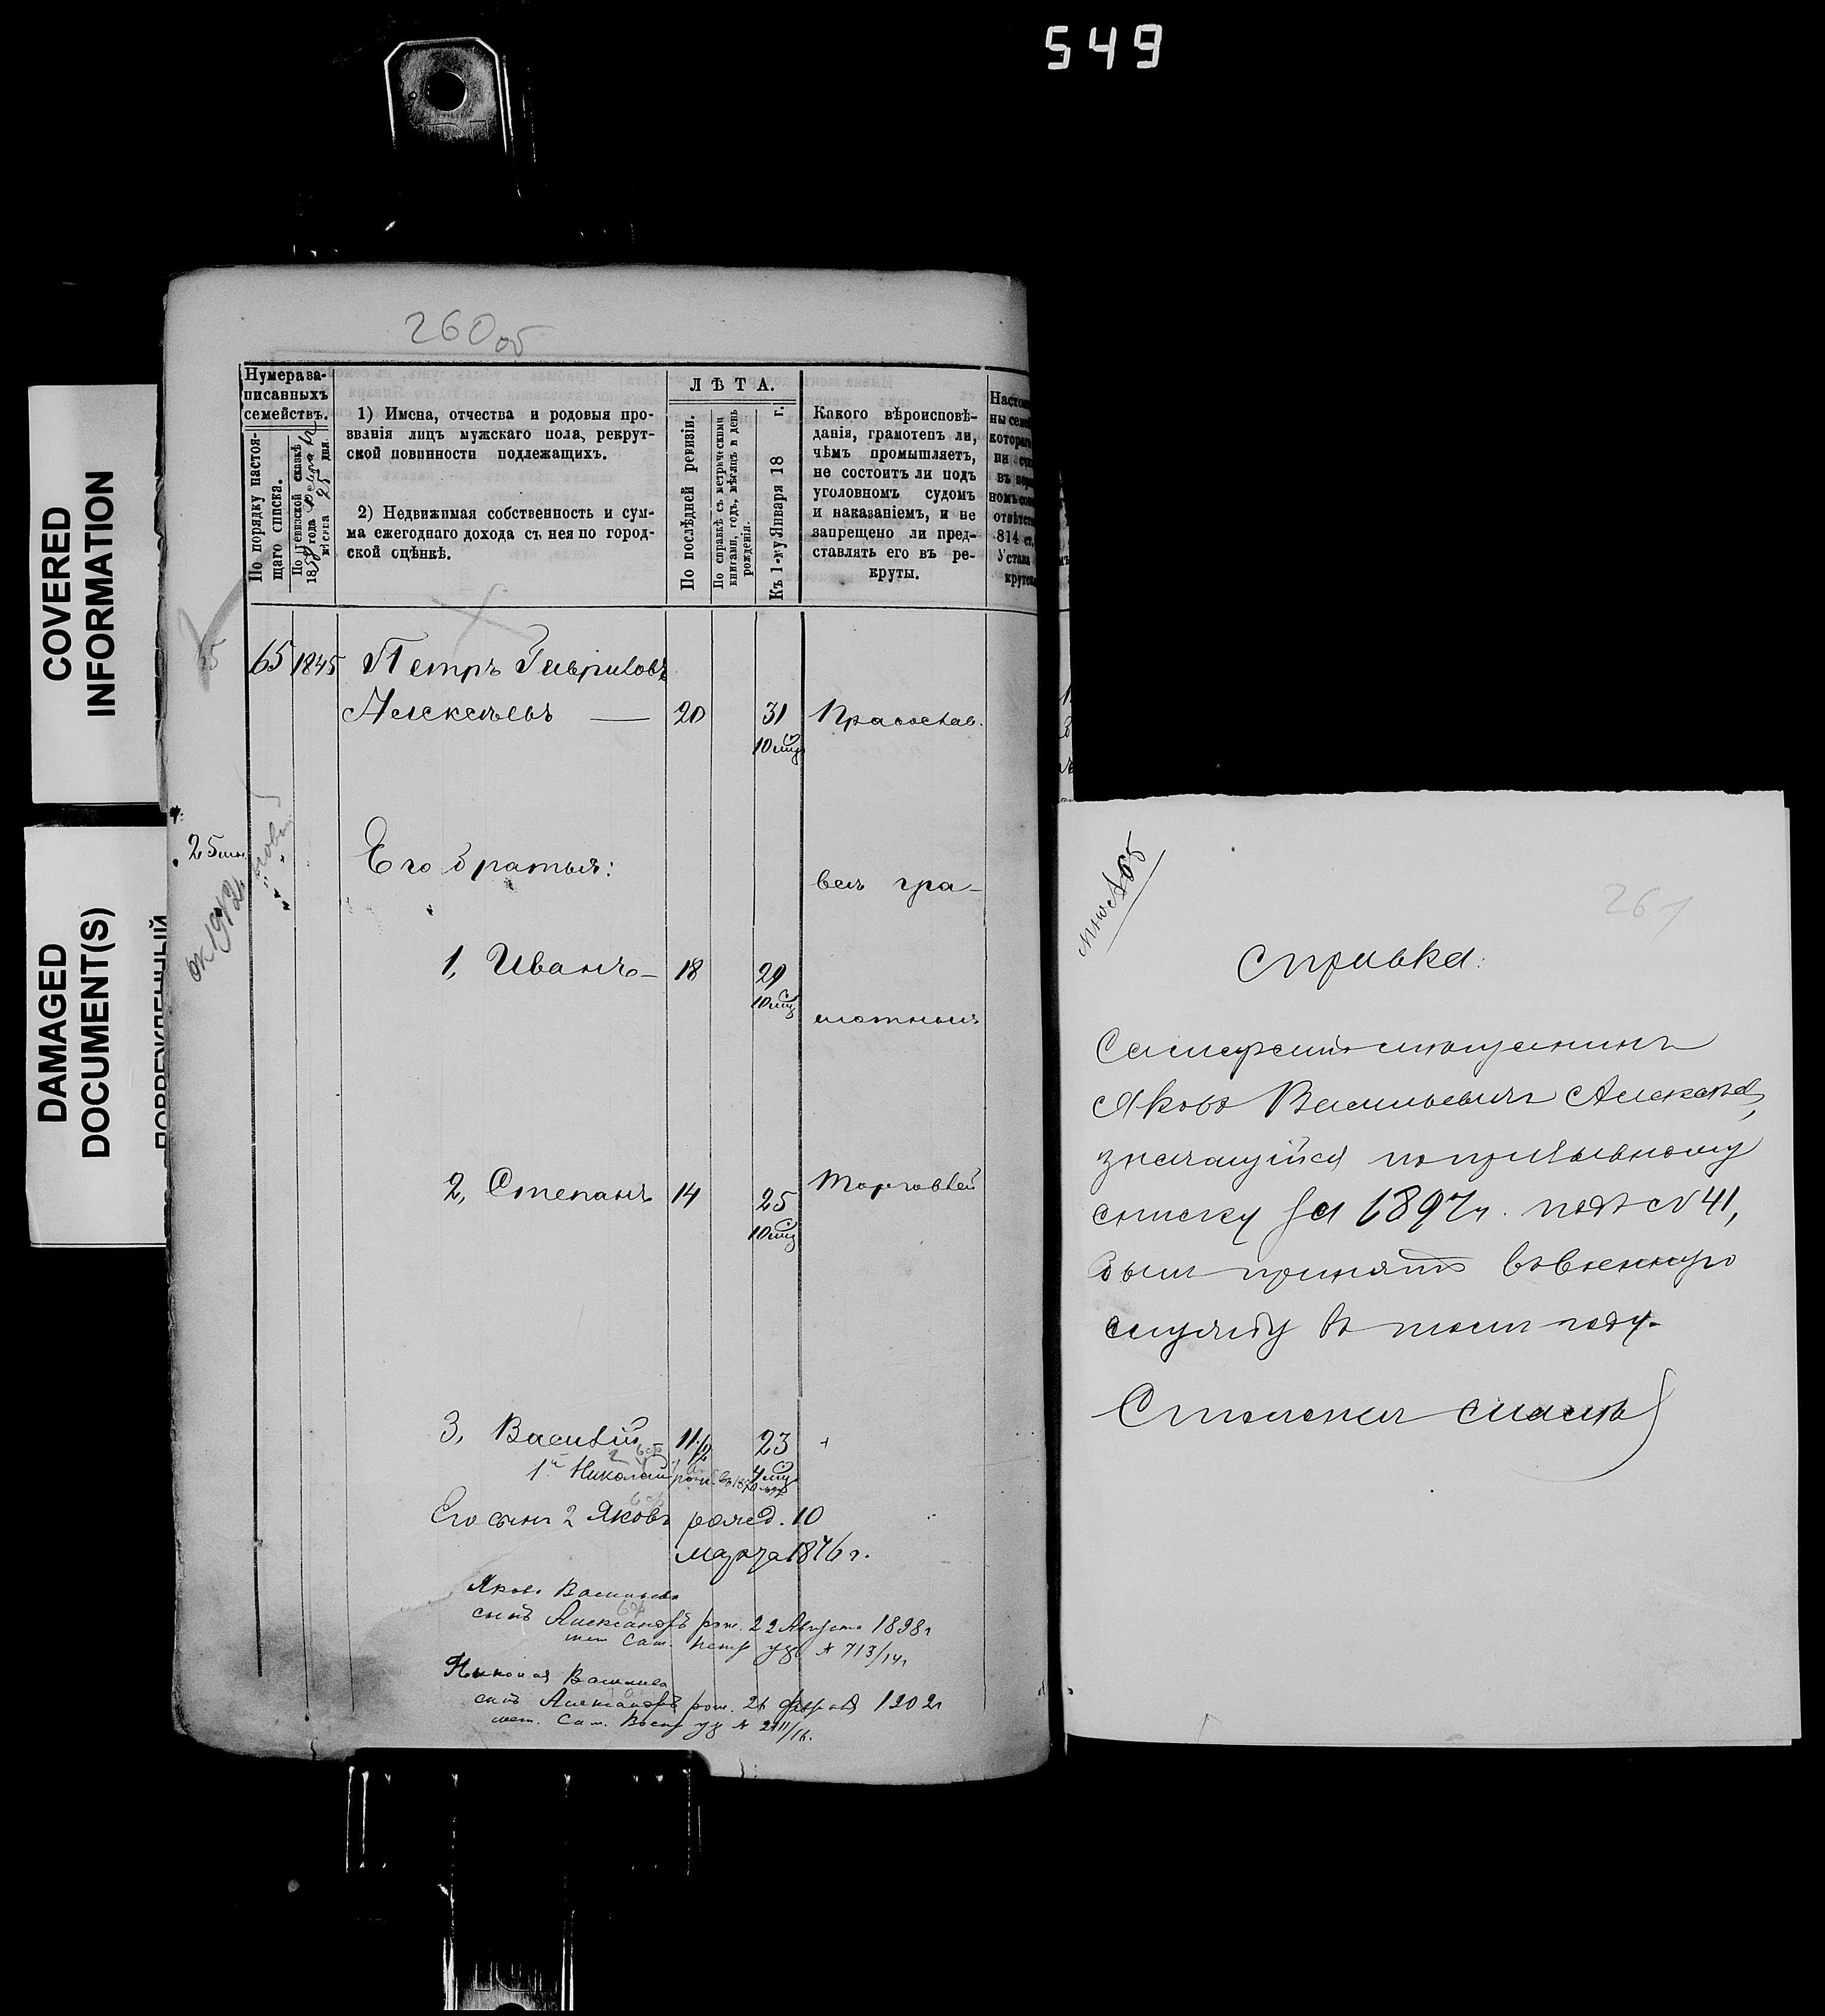 549
COVERED
INFORMATION
DAMAGED
DOCUMENT(S)
260 об
Нумера за-
писанныхъ
семействъ.
По порядку настоя-
щаго списка.
По ревизской сказкѣ
1858 года
мѣсяца 25 дня.
1) Имена, отчества и родовыя про-
званія лицъ мужскаго пола, рекрут-
ской повинности подлежащихъ.
2) Недвижимая собственность и сум-
ма ежегоднаго дохода съ нея по город-
ской оцѣнкѣ.
ЛѢТА.
По послѣдней ревизіи.
По справкѣ съ метрическими
книгами, годъ, мѣсяцъ и день
рожденія.
Къ 1-му Января 18 г.
Какого вѣроисповѣ-
данія, грамотенъ ли,
чѣмъ промышляетъ,
не состоитъ ли подъ
уголовномъ судомъ
и наказаніемъ, и не
запрещено ли пред-
ставлять его въ ре-
круты.
814 ст.
65 1845 Петръ Гавриловъ
Алексѣевъ — 20 31 Православ.
10 мѣс
25
Его братья:
вси гра-
1, Иванъ — 18 29
10 мѣс
мотныи
2, Степанъ 14 25 торговлей
10 мѣс
3, Василій — 11 1/2 23
1й Николай род. въ 1870 4 мѣс
Его сынъ 2 Яковъ рожд. 10
марта 1876 г.
Яковъ Васильева
сынъ Александръ рож. 22 Августа 1898 г
мет Сам. № 713/14 г
Николая Васильева
сынъ Александръ рож. 26 февраля 1902 г
мет. Сам.
№ 65
261
Справка:
Самарскій мѣщанинъ
Яковъ Васильевичъ Алексѣевъ,
значащійся по призывному
списку за 1897 г. подъ № 41,
былъ принятъ въ военную
службу въ томъ году.